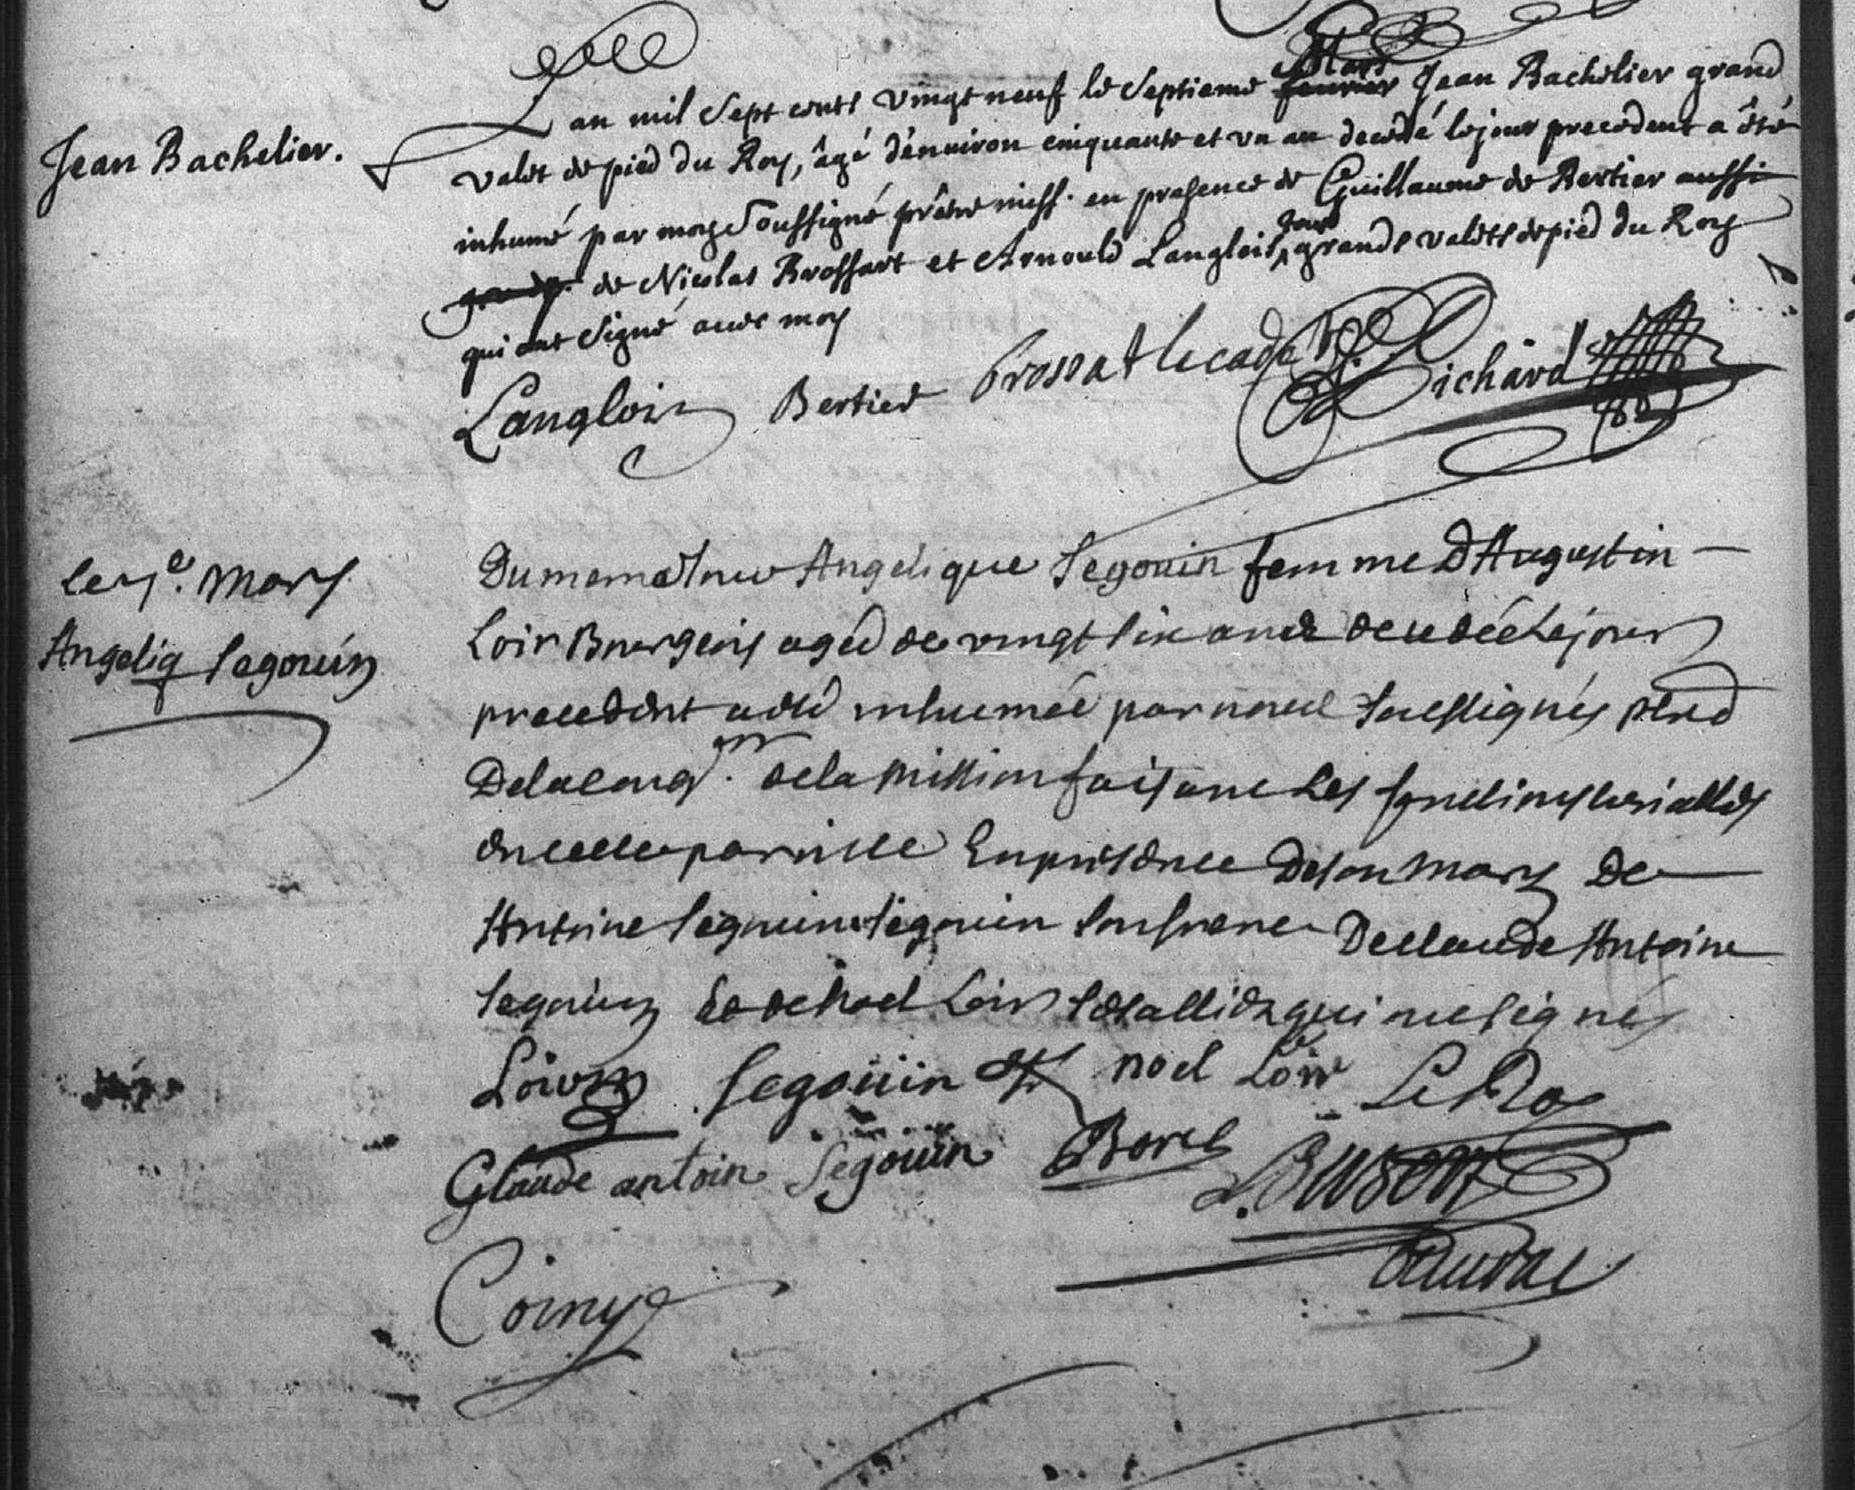 Jean Bachelier.
Lan mil Sept cents vingt neuf le Septieme Mars fevrier Jean Bachelier grand
valet de pied du Roy, âgé d'environ cinquante et un an decedé le jour precedent a été
inhumé par moy Soussigné prêtre miss. en presence de Guillaume de Bertier aussi
de Nicolas Brossart et Arnould Langlois, tous grands valets de pied du Roy
qui ont signé avec moy
Langlois Bertier brossat le cadet Richard
le 7e. Mars
Angeliq Segouin
Du meme Jour Angelique Segouin femme D'Augustin
Loir Bourgeois aged de vingt six ans decedée Le jour
precedent a eté inhumée par nous soussignés ptre
De la cong.on de la Mission faisant Les fonctions curialles
en cette paroisse En presence De son mary De
Antoine Segouin Segouin son frere De Claude Antoine
Segouin Et de Noel Loir ses alliez qui ont signés
Loir Segouin noel Loir Le Roy
Glaude antoin Segouin Borel
Coiny